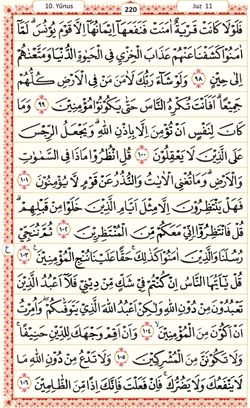 10. Yûnus 220 Juz 11
فَلَوْلَا كَانَتْ قَرْيَةٌ اٰمَنَتْ فَنَفَعَهَٓا ا۪يمَانُهَٓا اِلَّا قَوْمَ يُونُسَۜ لَمَّٓا
اٰمَنُوا كَشَفْنَا عَنْهُمْ عَذَابَ الْخِزْيِ فِي الْحَيٰوةِ الدُّنْيَا وَمَتَّعْنَاهُمْ
اِلٰى ح۪ينٍ ﴿٩٨﴾ وَلَوْ شَٓاءَ رَبُّكَ لَاٰمَنَ مَنْ فِي الْاَرْضِ كُلُّهُمْ
جَم۪يعًاۜ اَفَاَنْتَ تُكْرِهُ النَّاسَ حَتّٰى يَكُونُوا مُؤْمِن۪ينَ ﴿٩٩﴾ وَمَا
كَانَ لِنَفْسٍ اَنْ تُؤْمِنَ اِلَّا بِاِذْنِ اللّٰهِۜ وَيَجْعَلُ الرِّجْسَ
عَلَى الَّذ۪ينَ لَا يَعْقِلُونَ ﴿١٠٠﴾ قُلِ انْظُرُوا مَاذَا فِي السَّمٰوَاتِ
وَالْاَرْضِۜ وَمَا تُغْنِي الْاٰيَاتُ وَالنُّذُرُ عَنْ قَوْمٍ لَا يُؤْمِنُونَ ﴿١٠١﴾
فَهَلْ يَنْتَظِرُونَ اِلَّا مِثْلَ اَيَّامِ الَّذ۪ينَ خَلَوْا مِنْ قَبْلِهِمْۜ
قُلْ فَانْتَظِرُٓوا اِنّ۪ي مَعَكُمْ مِنَ الْمُنْتَظِر۪ينَ ﴿١٠٢﴾ ثُمَّ نُنَجّ۪ي
رُسُلَنَا وَالَّذ۪ينَ اٰمَنُوا كَذٰلِكَۚ حَقًّا عَلَيْنَا نُنْجِ الْمُؤْمِن۪ينَ ﴿١٠٣﴾ ع
قُلْ يَٓا اَيُّهَا النَّاسُ اِنْ كُنْتُمْ ف۪ي شَكٍّ مِنْ د۪ين۪ي فَلَٓا اَعْبُدُ الَّذ۪ينَ
تَعْبُدُونَ مِنْ دُونِ اللّٰهِ وَلٰكِنْ اَعْبُدُ اللّٰهَ الَّذ۪ي يَتَوَفّٰيكُمْۚ وَاُمِرْتُ
اَنْ اَكُونَ مِنَ الْمُؤْمِن۪ينَ ﴿١٠٤﴾ وَاَنْ اَقِمْ وَجْهَكَ لِلدّ۪ينِ حَن۪يفًاۚ
وَلَا تَكُونَنَّ مِنَ الْمُشْرِك۪ينَ ﴿١٠٥﴾ وَلَا تَدْعُ مِنْ دُونِ اللّٰهِ مَا
لَا يَنْفَعُكَ وَلَا يَضُرُّكَۚ فَاِنْ فَعَلْتَ فَاِنَّكَ اِذًا مِنَ الظَّالِم۪ينَ ﴿١٠٦﴾